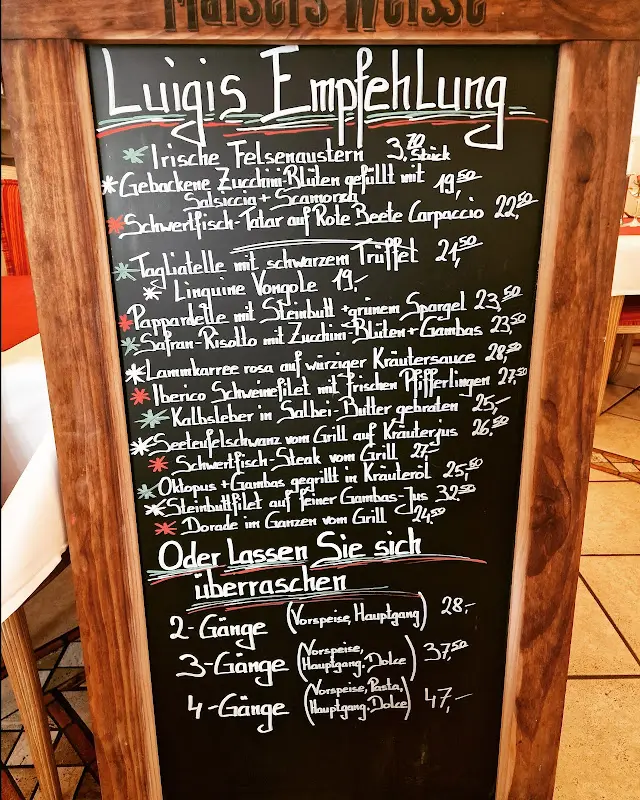 Maisel's Weisse
Luigis Empfehlung
* Irische Felsenaustern 3,70 Stück
* Gebackene Zucchini-Blüten gefüllt mit 19,50
Salsiccig + Scamorza
* Schwertfisch-Tatar auf Rote Beete Carpaccio 22,50
* Tagliatelle mit schwarzem Trüffel 21,50
* Linguine Vongole 19,-
* Pappardelle mit Steinbutt + grünem Spargel 23,50
* Safran-Risotto mit Zucchini-Blüten + Gambas 23,50
* Lammkarree rosa auf würziger Kräutersauce 28,50
* Iberico Schweinefilet mit frischen Pfifferlingen 27,50
* Kalbsleber in Salbei-Butter gebraten 25,-
* Seeteufelschwanz vom Grill auf Kräuterjus 26,50
* Schwertfisch-Steak vom Grill 27,-
* Oktopus + Gambas gegrillt in Kräuteröl 25,50
* Steinbuttfilet auf feiner Gambas-Jus 32,50
* Dorade im Ganzen vom Grill 24,50
Oder lassen Sie sich
überraschen
2-Gänge (Vorspeise, Hauptgang) 28,-
3-Gänge (Vorspeise, Hauptgang, Dolce) 37,50
4-Gänge (Vorspeise, Pasta, Hauptgang, Dolce) 47,-